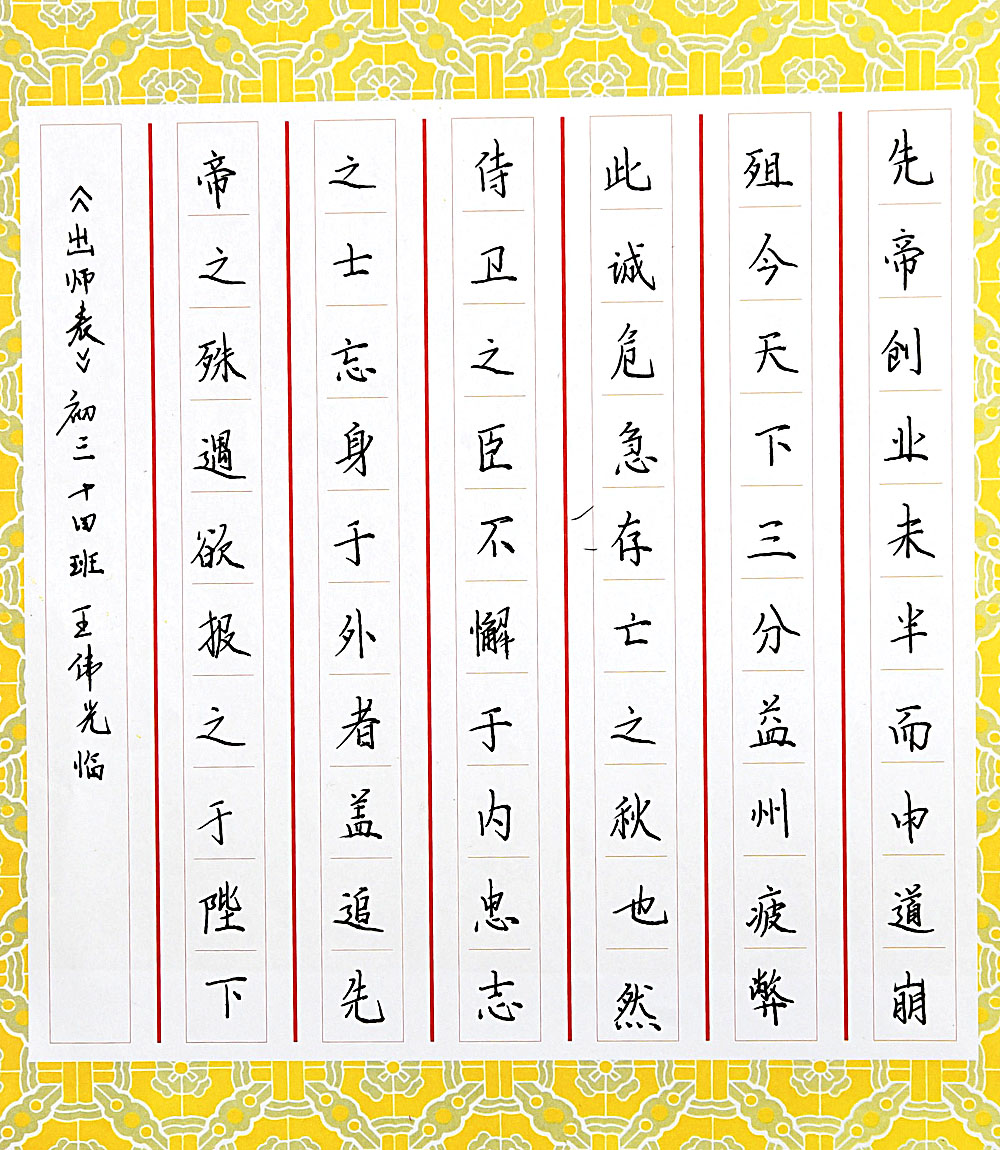 先帝创业未半而中道崩
殂今天下三分益州疲弊
此诚危急存亡之秋也然
侍卫之臣不懈于内忠志
之士忘身于外者盖追先
帝之殊遇欲报之于陛下
《出师表》初三十四班王伟光临